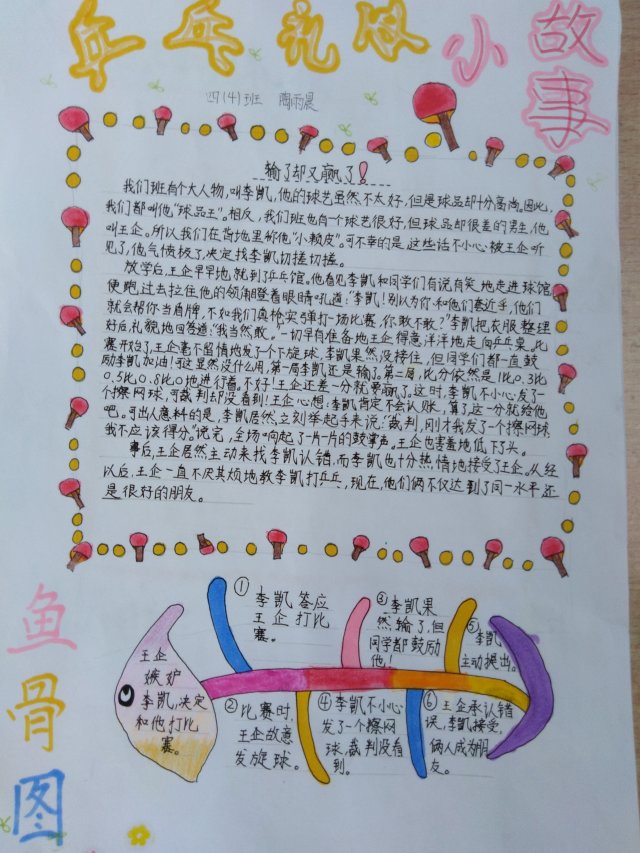 乒乓礼仪小故事
四(4)班 陶雨晨
输了却又赢了!
我们班有个大人物,叫李凯,他的球艺虽然不太好,但是球品却十分高尚。因此,
我们都叫他“球品王”。相反,我们班也有一个球艺很好,但球品却很差的男生,他
叫王企。所以我们在背地里称他“小赖皮”。可不幸的是,这些话不小心被王企听
见了,他气愤极了,决定找李凯切搓切搓。
放学后,王企早早地,就到了乒乓馆。他看见李凯和同学们有说有笑地走进球馆
便跑过去拉住他的领角瞪着眼睛吼道:“李凯!别以为你和他们套近乎,他们
就会帮你当盾牌,不如我们真枪实弹打一场比赛,你敢不敢?”李凯把衣服整理
好后,礼貌地回答道:“我当然敢。”一切早有准备地王企得意洋洋地走向乒乓桌。比
赛开始了,王企毫不留情地发了个下旋球,李凯果然没接住,但同学们都一直鼓
励李凯加油!可这显然没什么用,第一局李凯还是输了。第二局,比分依然是1比0.3比
0.5比0.8比0地进行着。不好!王企还差一分就要赢了。这时,李凯不小心发了一
个擦网球,可裁判却没看到!王企心想:李凯肯定不会认账,算了这一分就给他
吧。可出人意料的是,李凯居然立刻举起手来说:“裁判,刚才我发了一个擦网球,
我不应该得分。”说完,全场响起了一片一片的鼓掌声。王企也害羞地低下了头。
事后,王企居然主动来找李凯认错,而李凯也十分热情地接受了王企。从经
以后,王企一直不厌其烦地教李凯打乒乓,现在,他们俩不仅达到了同一水平还
是很好的朋友。
鱼骨图
王企
嫉妒
李凯,决定
和他打比
赛。
①李凯答应
王企打比
赛。
②比赛时,
王企故意
发旋球。
③李凯果
然输了,但
同学都鼓励
他!
④李凯不小心
发了一个擦网
球,裁判没看
到。
⑤李凯
主动提出。
⑥王企承认错
误,李凯接受,
俩人成为朋
友。